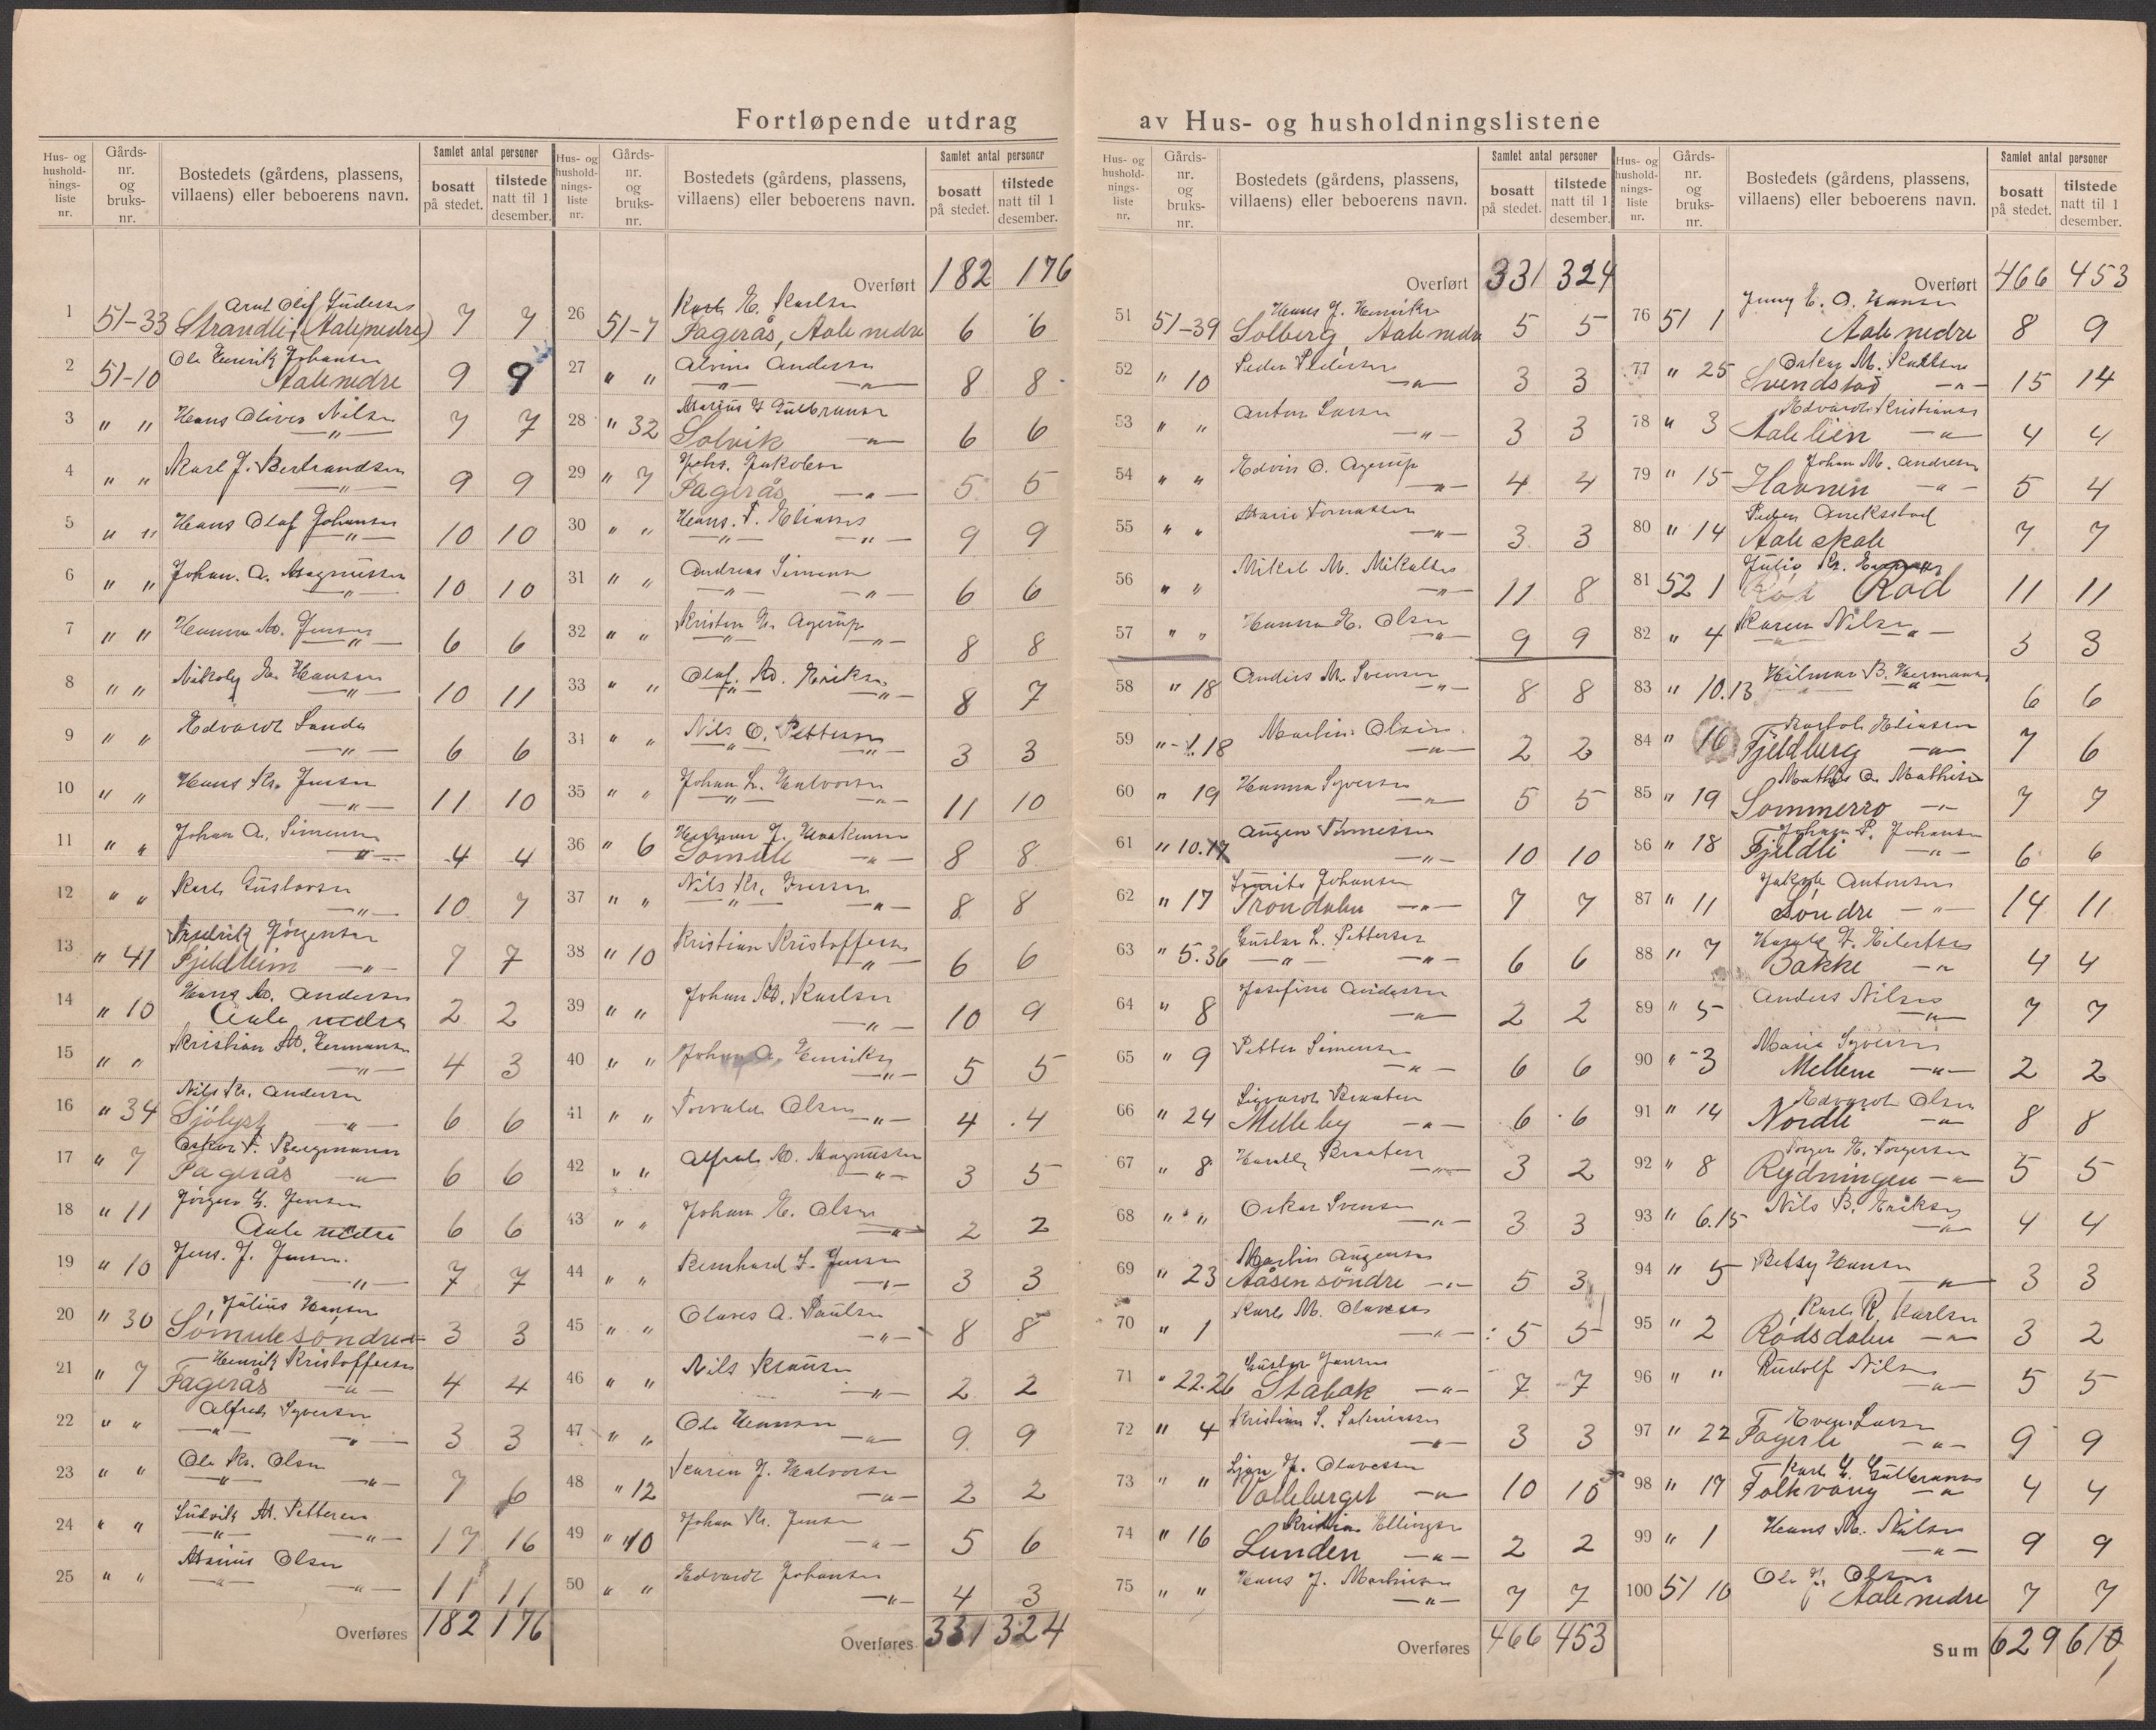 Fortløpende utdrag av Hus- og husholdningslistene
Hus- og husholdningsliste nr.
Gårds-nr. og bruks-nr.
Bostedets (gårdens, plassens, villaens) eller beboerens navn.
Samlet antal personer
bosatt på stedet.
tilstede natt til 1 desember.
1 51-33 Arnt Olaf Gudesen Strandli (Aale nedre) 7 7
2 51-10 Ole Henrik Johansen Aale nedre 9 9
3 " " Hans Oliver Nilsen —"— 7 7
4 " " Karl J. Bertrandsen —"— 9 9
5 " " Hans Olaf Johansen —"— 10 10
6 " " Johan. A. Magnussen —"— 10 10
7 " " Hanna M. Jensen —"— 6 6
8 " " Nikolay Hansen —"— 10 11
9 " " Edvardt Sande —"— 6 6
10 " " Hans Kr. Jensen —"— 11 10
11 " " Johan A. Simensen —"— 4 4
12 " " Karl Gustavsen —"— 10 7
13 " 41 Fredrik Jörgensen Fjeldheim —"— 7 7
14 " 10 Hans M. Andersen Aale nedre 2 2
15 " " Kristian M. Hermansen —"— 4 3
16 " 34 Nils Kr. Andersen Sjölyst —"— 6 6
17 " 7 Oskar F. Bergmann Fagerås —"— 6 6
18 " 11 Jörgen G. Jensen Aale nedre 6 6
19 " 10 Jens. J. Jensen —"— 7 7
20 " 30 Julius Hansen Sömule söndre 3 3
21 " 7 Henrik Kristoffersen Fagerås —"— 4 4
22 " " Alfred Syversen —"— —"— 3 3
23 " " Ole Kr. Olsen —"— —"— 7 6
24 " " Ludvik M. Pettersen —"— —"— 17 16
25 " " Marius Olsen —"— —"— 11 11
Overføres 182 176
Overført 182 176
26 51-7 Karl E. Karlsen Fagerås, Aale nedre 6 6
27 " " Alvine Andersen —"— —"— 8 8
28 " 32 Marius Gulbransen Solvik —"— 6 6
29 " 7 Johs. Jakobsen Fagerås —"— 5 5
30 " " Hans. T. Eliassen —"— —"— 9 9
31 " " Andreas Simensen —"— —"— 6 6
32 " " Kristen H. Agerup —"— —"— 8 8
33 " " Olaf. M. Eriksen —"— —"— 8 7
34 " " Nils O. Pettersen —"— —"— 3 3
35 " " Johan L. Halvorsen —"— —"— 11 10
36 " 6 Herman J. Haakonsen Sömule —"— 8 8
37 " " Nils Kr. Iversen —"— —"— 8 8
38 " 10 Kristian Kristoffersen —"— 6 6
39 " " Johan M. Karlsen —"— 10 9
40 " " Johan A. Henriksen —"— 5 5
41 " " Torvald Olsen —"— 4 4
42 " " Alfred M. Magnussen —"— 3 5
43 " " Johan E. Olsen —"— 2 2
44 " " Bernhard L. Jensen —"— 3 3
45 " " Olaves A. Paulsen —"— 8 8
46 " " Nils Hansen —"— 2 2
47 " " Ole Hansen —"— 9 9
48 " 12 Karen J. Halvorsen —"— 2 2
49 " 10 Johan Kr. Jensen —"— 5 6
50 " " Edvardt Johansen —"— 4 3
Overføres 331 324
Overført 331 324
51 51-39 Hans J. Henriksen Solberg Aale nedre 5 5
52 " 10 Peder Pedersen —"— 3 3
53 " " Anton Larsen —"— 3 3
54 " " Edvin O. Agerup —"— 4 4
55 " " Marie Tomassen —"— 3 3
56 " " Mikal M. Mikalsen —"— 11 8
57 " " Hanna E. Olsen —"— 9 9
58 " 18 Anders M. Svensen —"— 8 8
59 " 1.18 Martin Olsen —"— 2 2
60 " 19 Hanna Syversen —"— 5 5
61 " 10.17 Augen Tönnesen —"— 10 10
62 " 17 Johansen Trondalen —"— 7 7
63 " 5.36 Gustav L. Pettersen —"— —"— 6 6
64 " 8 Josefine Andersen —"— 2 2
65 " 9 Petter Simensen —"— 6 6
66 " 24 Sigvardt Braaten Melleby —"— 6 6
67 " 8 Harald Braaten —"— 3 2
68 " " Oskar Svensen —"— 3 3
69 " 23 Martin Augensen Aåsen söndre —"— 5 3
70 " 1 Karl M. Olavesen —"— 5 5
71 " 22.26 Gustav Jansen Stabak —"— 7 7
72 " 4 Kristian S. Salmiussen —"— 3 3
73 " " J. Olavesen Valleberget —"— 10 10
74 " 16 Kristian Ellingsen Lunden —"— 2 2
75 " " Hans J. Martinsen —"— 7 7
Overføres 466 453
Overført 466 453
76 51 1 Jenny E. O. Hansen Aale nedre 8 9
77 " 25 Oskar M. Karlsen Svendstad —"— 15 14
78 " 3 Edvardt Kristiansen Aalelien —"— 4 4
79 " 15 Johan M. Andresen Havnen —"— 5 4
80 " 14 Peder Aale skole 7 7
81 52 1 Julie Kr. Röd 11 11
82 " 4 Karen Nilsen —"— —"— 3 3
83 " 10.13 Hilmar B. Hermansen —"— 6 6
84 " 16 Eliassen Fjeldberg —"— 7 6
85 " 19 Mathis A. Mathisen Sommerro —"— 7 7
86 " 18 Johan P. Johansen Fjeldli —"— 6 6
87 " 11 Jakob Antonsen Söndre —"— 14 11
88 " 7 Harald F. Eilertsen Bakke —"— 4 4
89 " 5 Anders Nilsen —"— 7 7
90 " 3 Marie Syversen Mellem —"— 2 2
91 " 14 Edvardt Olsen Nordli —"— 8 8
92 " 8 Torger H. Torgersen Rydningen —"— 5 5
93 " 6.15 Nils B. Eriksen —"— 4 4
94 " 5 Betsy Hansen —"— 3 3
95 " 2 Karl R. Karlsen Rödsdalen —"— 3 2
96 " " Rudolf Nilsen —"— 5 5
97 " 22 Even Larsen Fagerli —"— 9 9
98 " 17 Karl G. Gulbransen Folkvang —"— 4 4
99 " 1 Hans M. Nilsen —"— 9 9
100 51 10 Ole J. Olsen Aale nedre 7 7
Sum 629 610